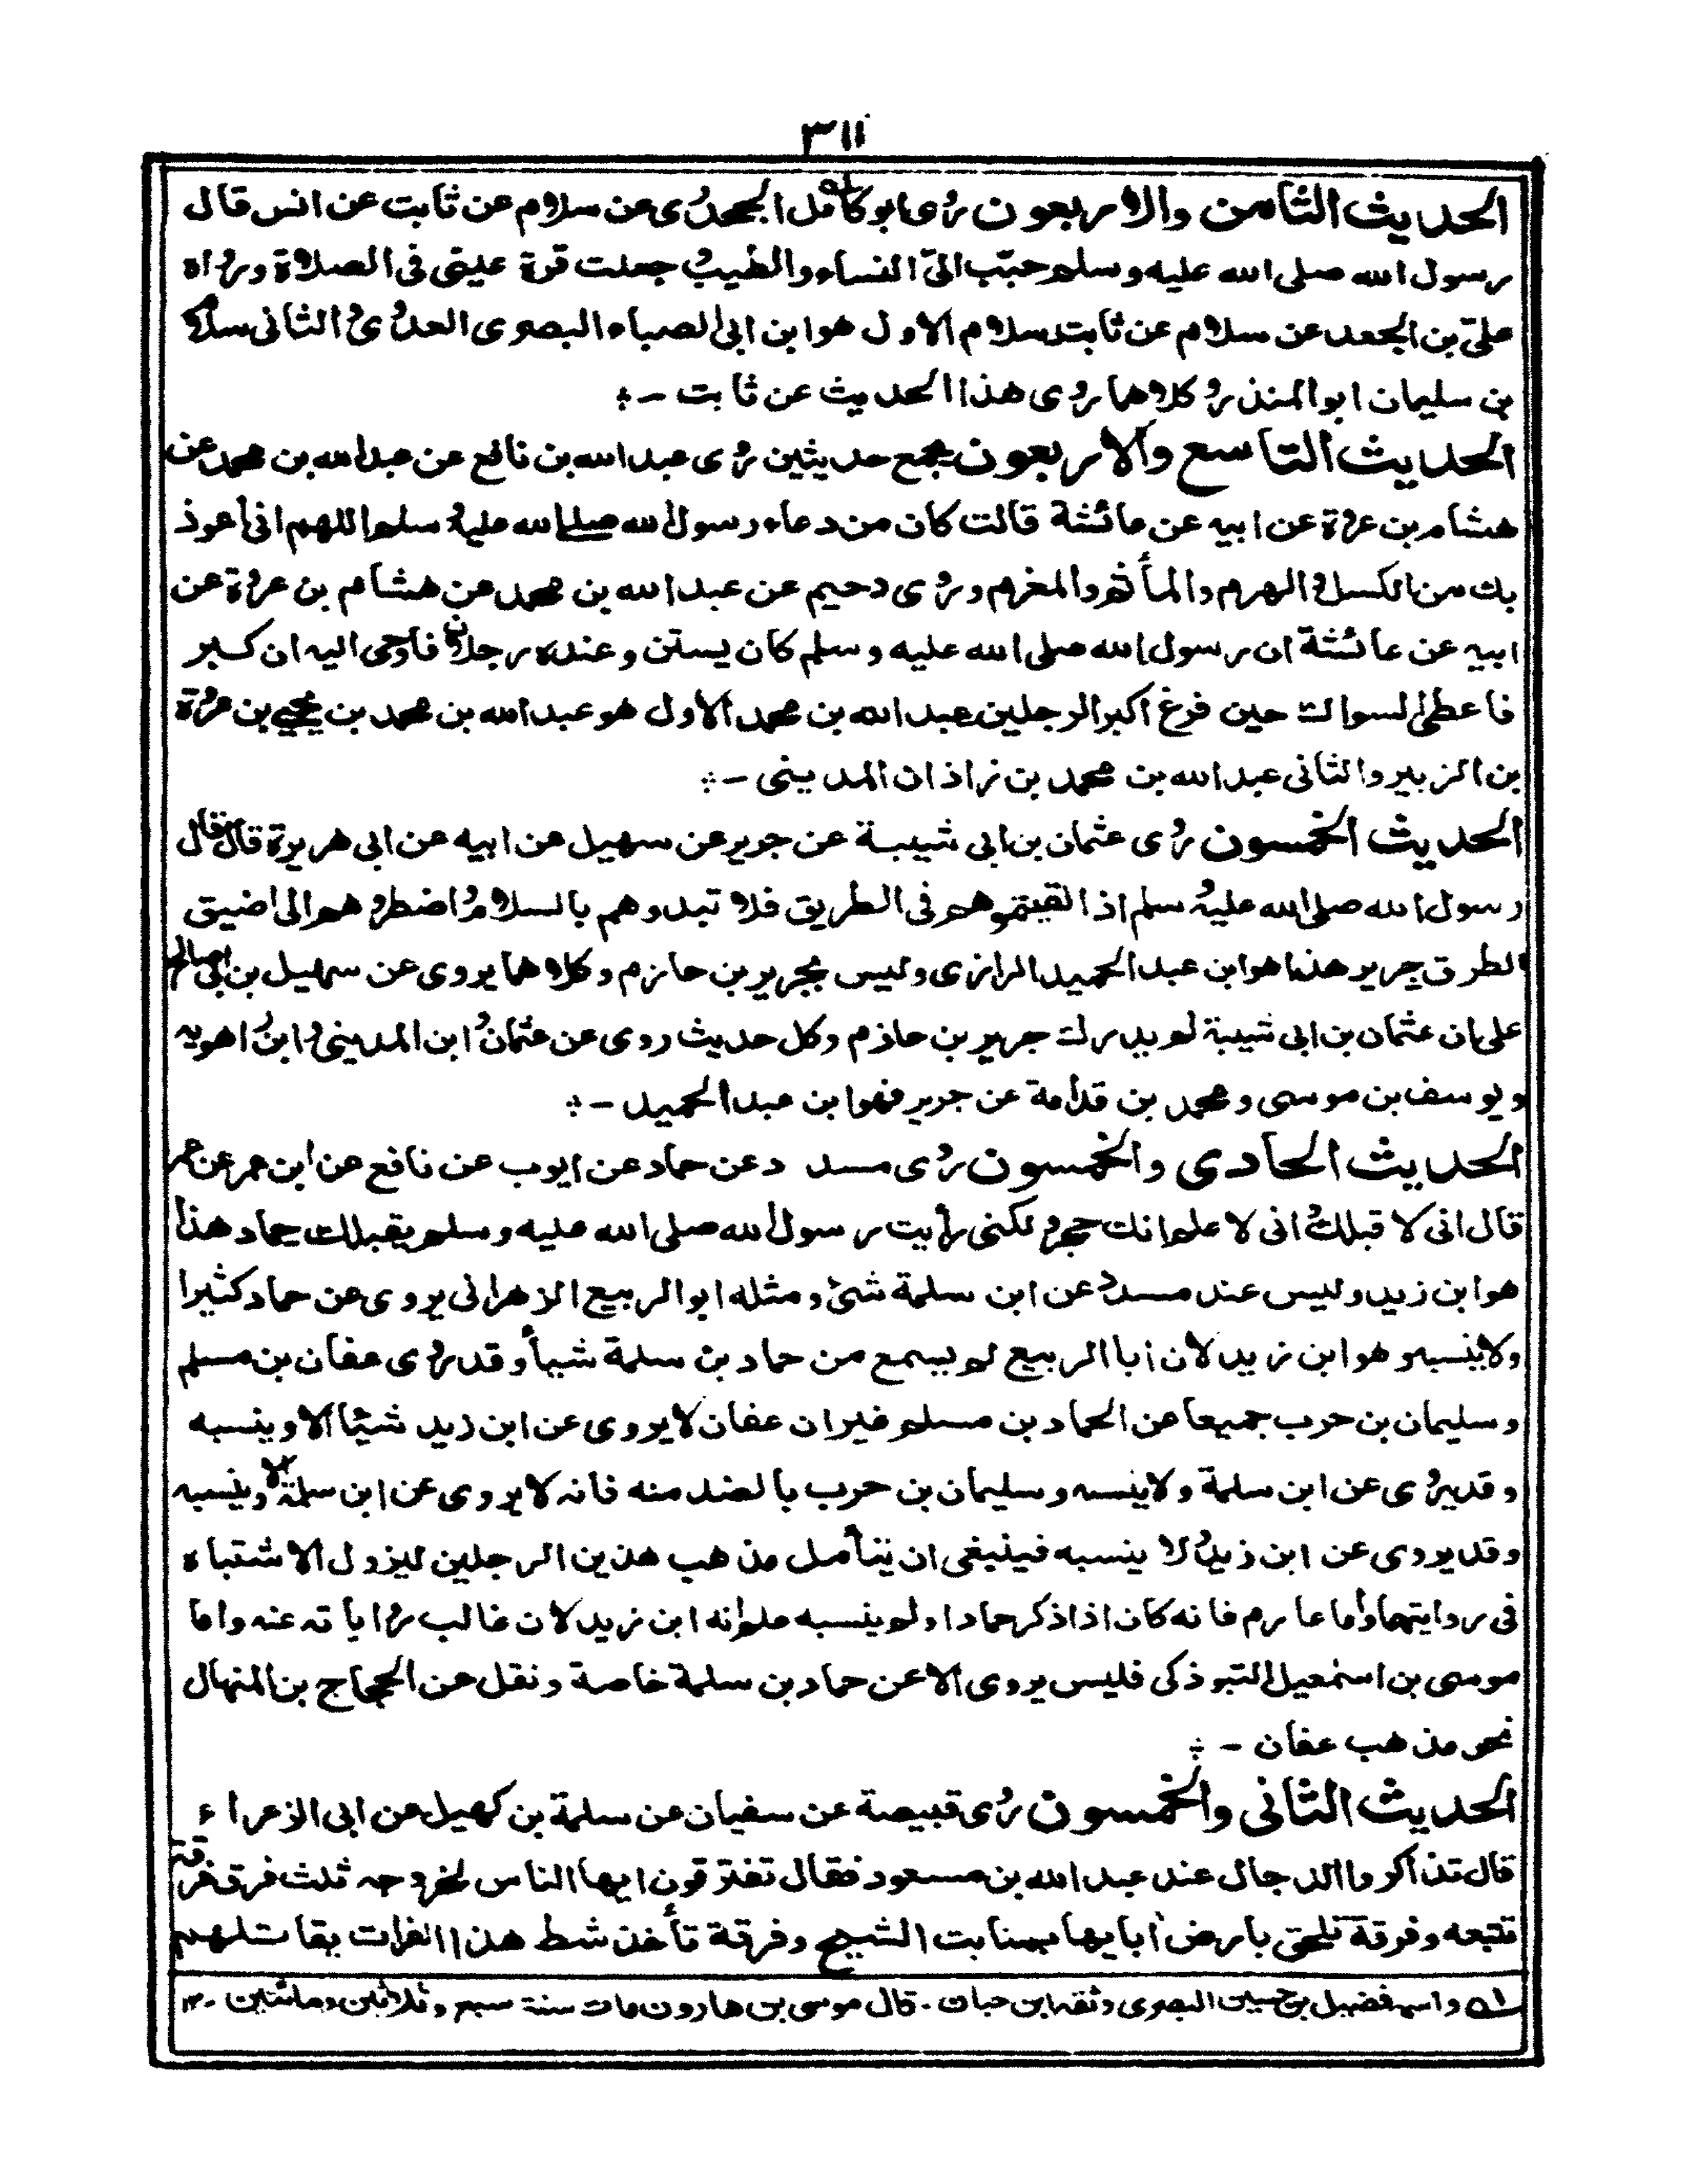 ٣١١
الحديث الثامن والاربعون روى ابو كامل الجحدرى عن سلام عن ثابت عن انس قال
رسول الله صلى الله عليه وسلم حبّب الىّ النساء والطيب و جعلت قرة عينى فى الصلاة ورواه
علىّ بن الجعد عن سلام عن ثابت سلام الاول هوابن ابى الصباء البصرى العدوى و الثانى سلام
بن سليمان ابو المنذر و كلاهما روى هذا الحديث عن ثابت -
الحديث التاسع والاربعون يجمع حديثين روى عبد الله بن نافع عن عبد الله بن محمد عن
هشام بن عروة عن ابيه عن عائشة قالت كان من دعاء رسول الله صلى الله عليه و سلم اللهم انى أعوذ
بك من الكسل و الهرم والمأثم والمغرم وروى دحيم عن عبد الله بن محمد عن هشام بن عروة عن
ابيه عن عائشة ان رسول الله صلى الله عليه وسلم كان يستن وعنده رجلان فأوحى اليه ان كبر
فاعطى السواك حين فرغ أكبر الرجلين عبد الله بن محمد الاول هو عبد الله بن محمد بن يحيى بن عروة
بن الزبير والثانى عبد الله بن محمد بن زاذان المدينى -
الحديث الخمسون روى عثمان بن ابى شيبة عن جرير عن سهيل عن ابيه عن ابى هريرة قال قال
رسول الله صلى الله عليه و سلم اذا لقيتموهم فى الطريق فلا تبدوهم بالسلام و اضطروهم الى اضيق
الطرق جرير هذا هوابن عبد الحميد الرازى وليس بجرير بن حازم وكلاهما يروى عن سهيل بن ابى صالح
على ان عثمان بن ابى شيبة لم يدرك جرير بن حازم وكل حديث روى عن عثمان و ابن المدينى و ابن راهويه
ويوسف بن موسى ومحمد بن قدامة عن جرير فهوابن عبد الحميد -
الحديث الحادى والخمسون روى مسدد عن حماد عن ايوب عن نافع عن ابن عمر عن عمر
قال انى لاقبلك و انى لاعلم انك حجر و لكنى رأيت رسول الله صلى الله عليه وسلم يقبلك حماد هذا
هوابن زيد وليس عند مسدد عن ابن سلمة شئ ومثله ابو الربيع الزهرانى يروى عن حماد كثيرا
ولاينسبه وهوابن زيد لان أبا الربيع لم يسمع من حماد بن سلمة شيأ وقد روى عفان بن مسلم
وسليمان بن حرب جميعا عن الحماد بن مسلم غير ان عفان لايروى عن ابن زيد شيئا الا وينسبه
وقد يروى عن ابن سلمة ولاينسبه وسليمان بن حرب بالضد منه فانه لايروى عن ابن سلمة الا وينسبه
وقد يروى عن ابن زيد و لا ينسبه فينبغى ان يتأمل مذهب هذين الرجلين ليزول الاشتباه
فى روايتهما وأما عارم فانه كان اذا ذكر حمادا ولم ينسبه علم انه ابن زيد لان غالب رواياته عنه واما
موسى بن اسمعيل التبوذكى فليس يروى الا عن حماد بن سلمة خاصة ونقل عن الحجاج بن المنهال
نحو مذهب عفان -
الحديث الثانى والخمسون روى قبيصة عن سفيان عن سلمة بن كهيل عن ابى الزعراء
قال تذاكروا الدجال عند عبد الله بن مسعود فقال تفترقون ايها الناس لخروجه ثلث فرق فرقة
تتبعه وفرقة تلحق بارض آبايها بمنابت الشيح وفرقة تأخذ شط هذا الفرات يقاتلهم
له واسمه فضيل بن حسين البصرى وثقه ابن حبان - قال موسى بن هارون مات سنة سبع وثلاثين ومائتين - ١٢